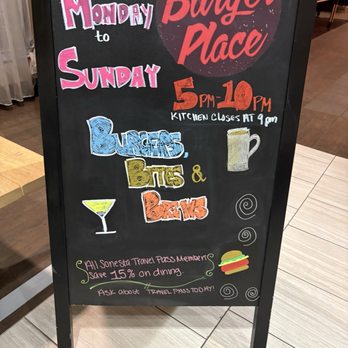 Monday
to
Sunday
Burger
Place
5pm-10pm
Kitchen closes at 9pm
Burgers,
Bites &
Brews
All Sonesta Travel Pass Members
save 15% on dining.
Ask about Travel Pass today!